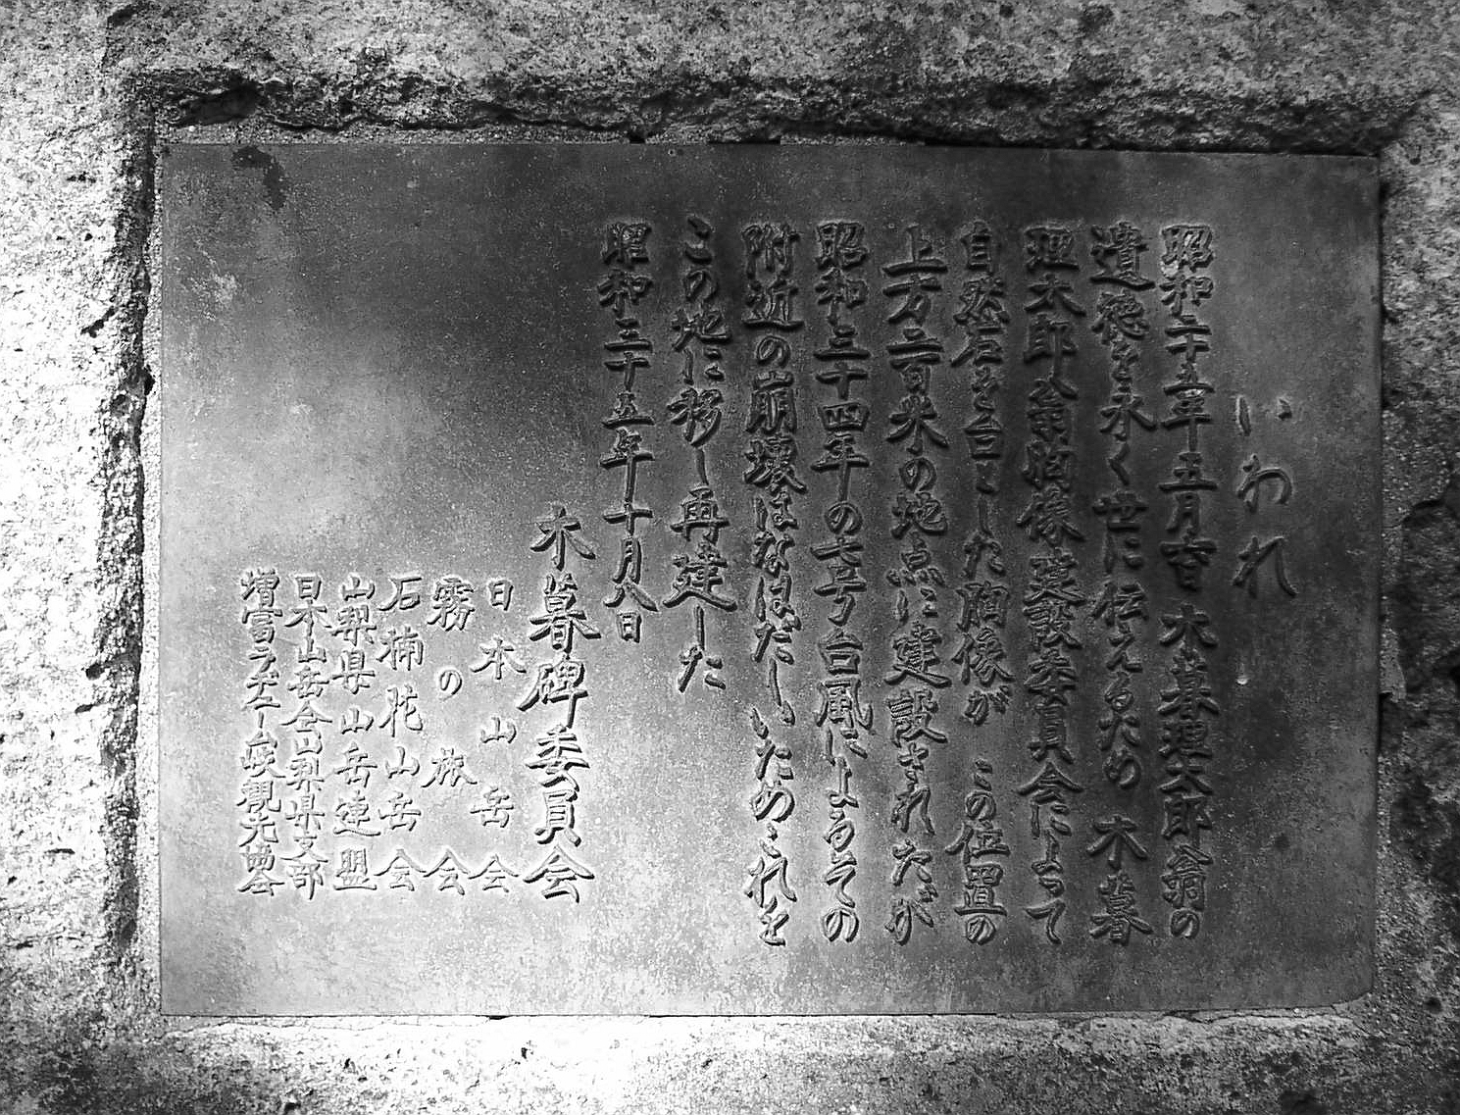 いわれ
昭和二十五年五月吉日 木暮理太郎翁の
遺徳を永く世に伝えるため 木暮
理太郎翁胸像建設委員会によって
自然石を台とした胸像が この位置の
上方二百米の地点に建設されたが
昭和三十四年の七号台風によるその
附近の崩壊はなはだしいためこれを
この地に移し再建した
昭和三十五年十月八日
木暮碑委員会
日本山岳会
霧の旅会
石楠花山岳会
山梨県山岳連盟
日本山岳会山梨県支部
増富ラヂューム峡観光協会